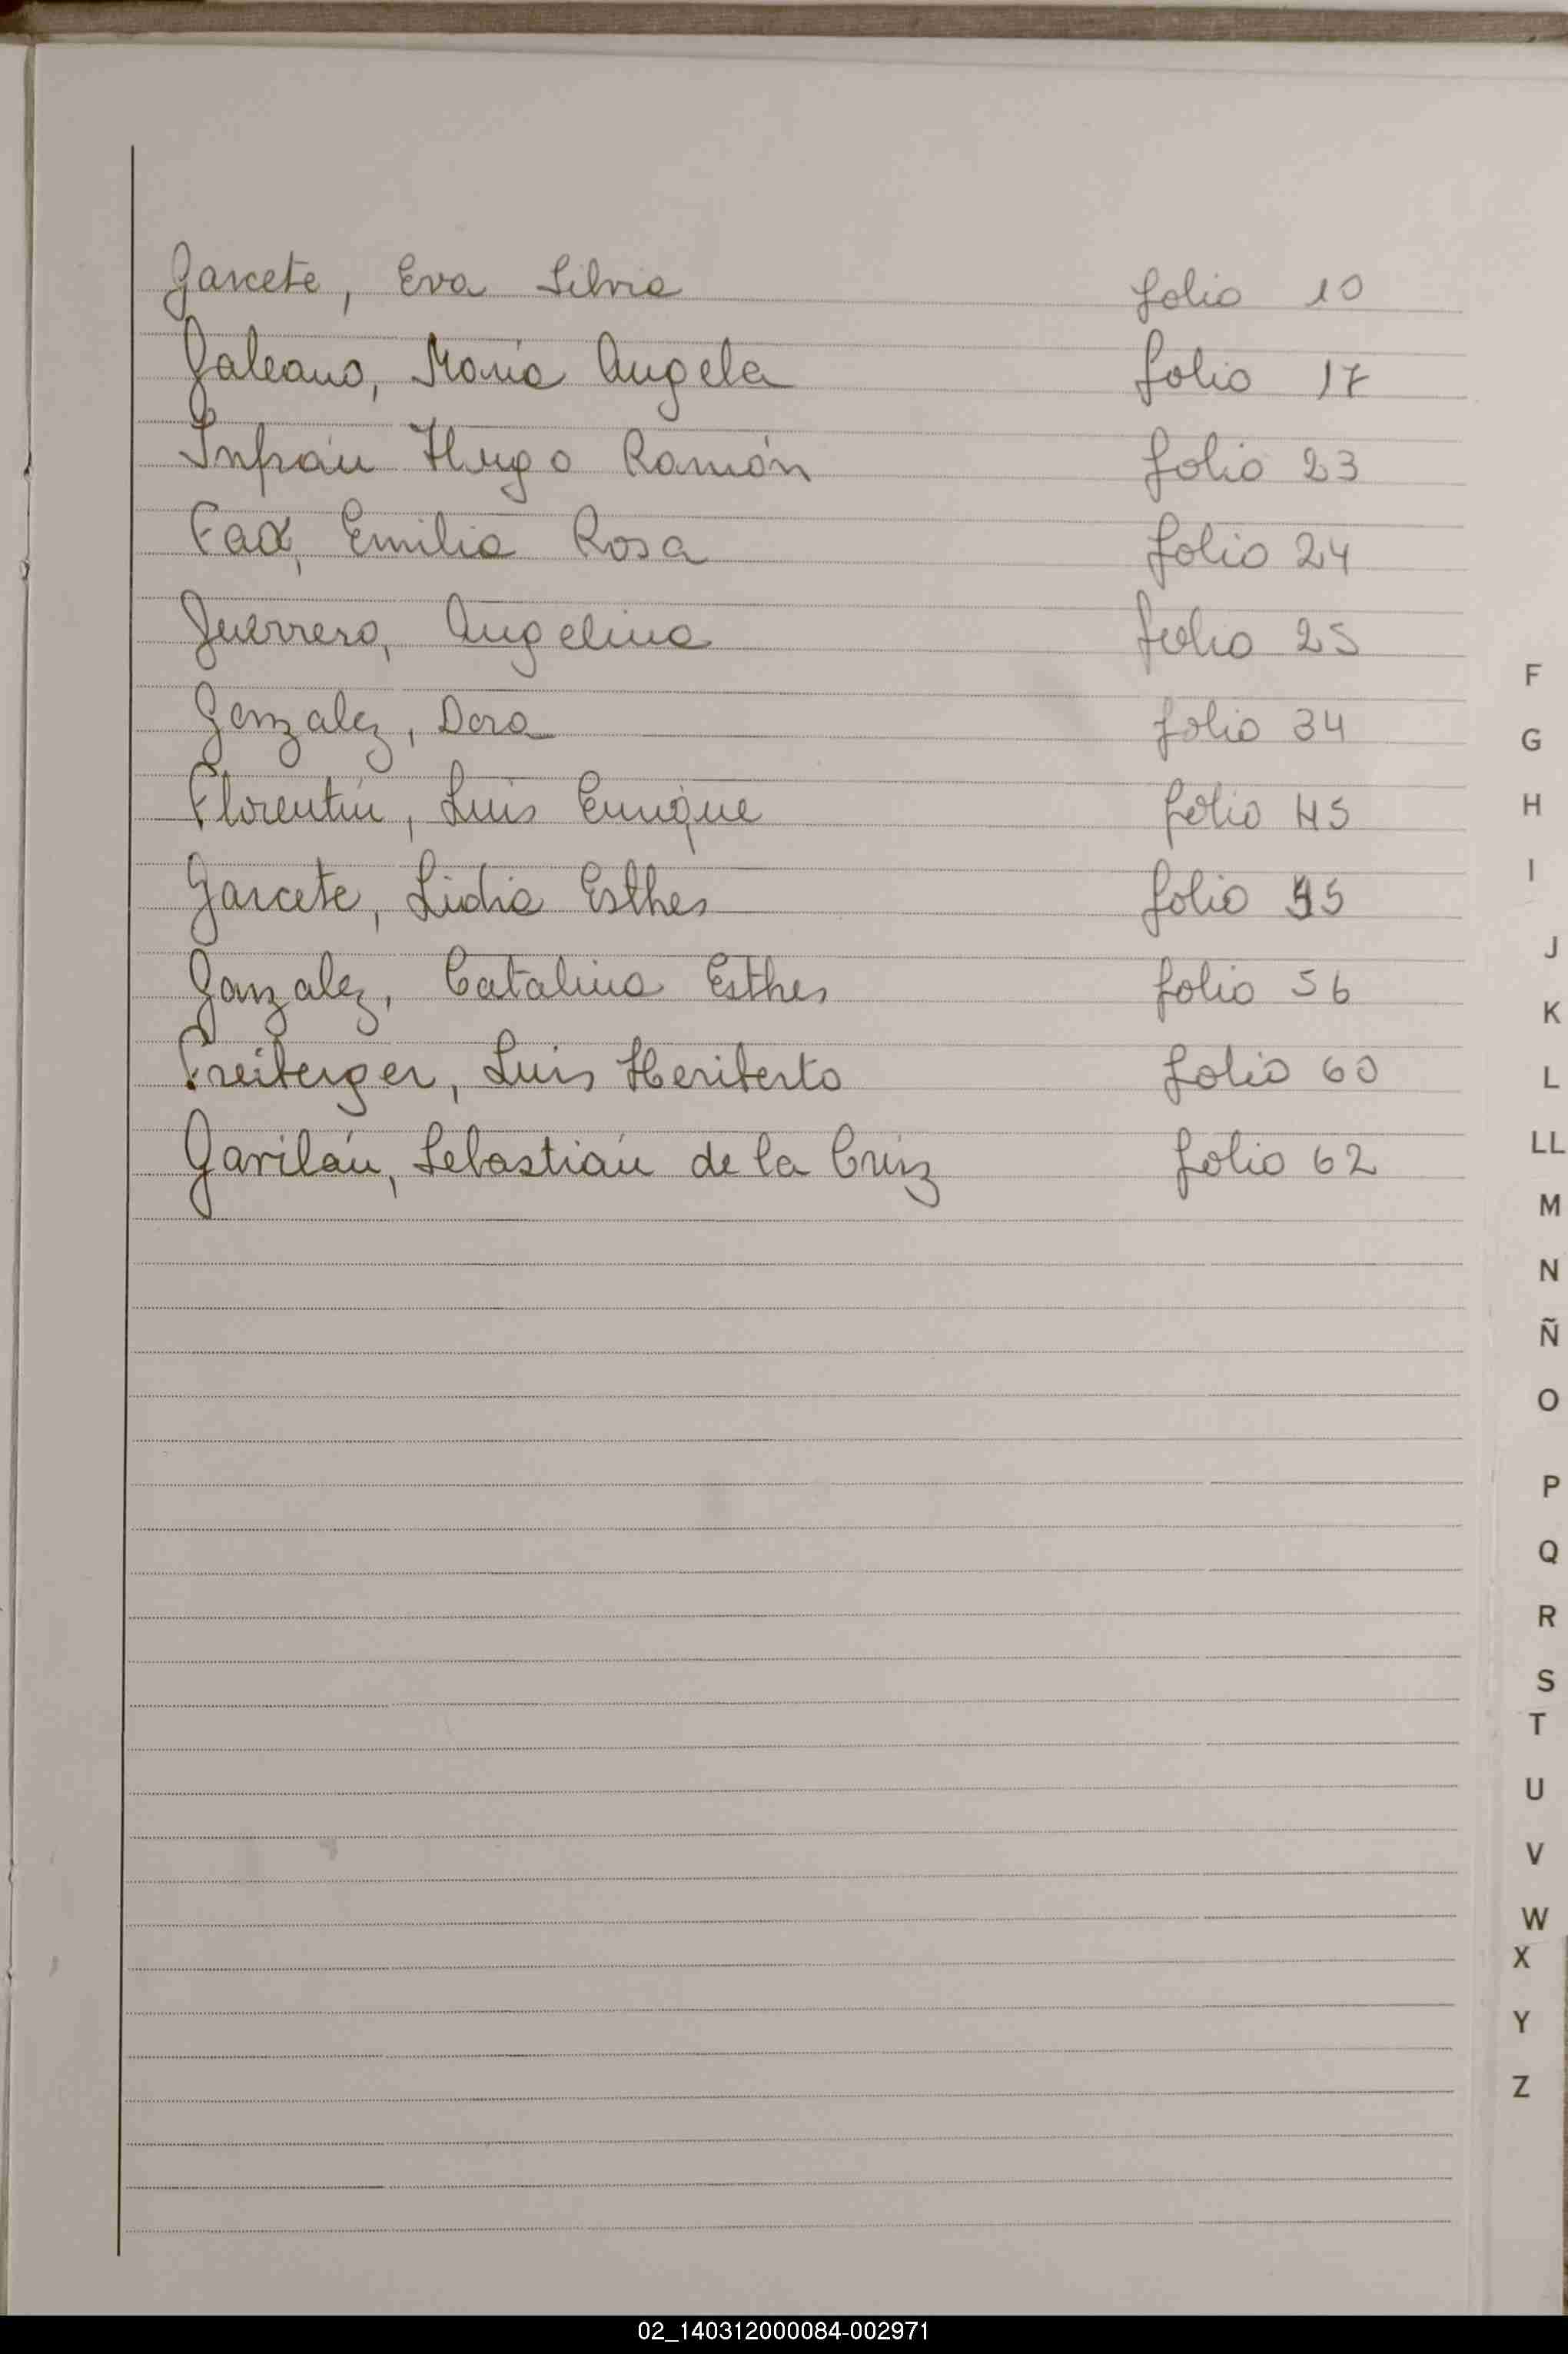 Garcete, Eva Silvia folio 10
Galeano, María Angela folio 17
Infrán Hugo Ramón folio 23
Emilia Rosa folio 24
Guerrero, Angelina folio 25
Gonzalez, Dora folio 34
Florentín, Luis Enrique folio 45
Garcete, Lidia Esther folio
Gonzalez, Catalina Esther folio 56
Freiberger, Luis Heriberto folio 60
Gavilán, Sebastián de la Cruz folio 62
F
G
H
I
J
K
L
LL
M
N
Ñ
O
P
Q
R
S
T
U
V
W
X
Y
Z
02_140312000084-002971